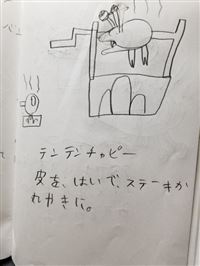 テンテンチャッピー
皮を、はいで、ステーキか
れやきに。